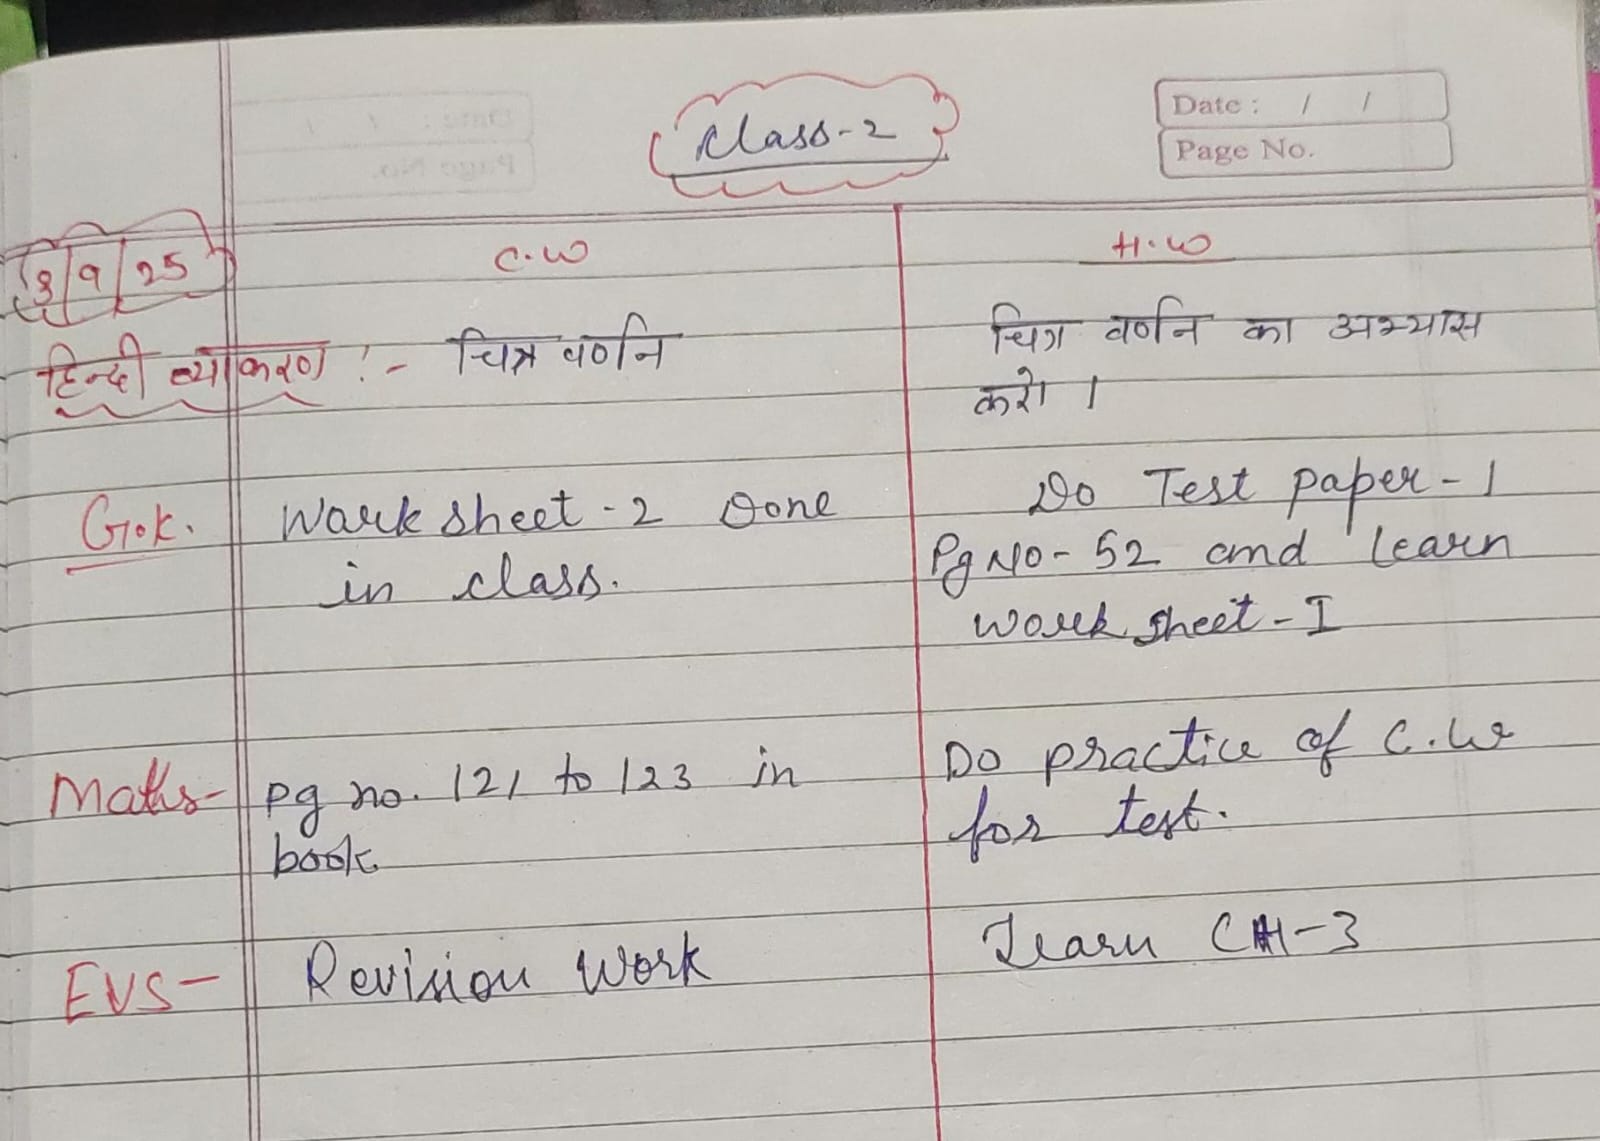 Class-2
Date : / /
Page No.
3/9/25
C.W
H.W
हिन्दी व्याकरण :- चित्र वर्णन
चित्र वर्णन का अभ्यास
करो ।
G.K.
Work sheet - 2 Done
in class.
Do Test paper - 1
Pg No - 52 and learn
work sheet - I
Maths-
pg no. 121 to 123 in
book
Do practice of C.W
for test.
EVS-
Revision Work
Learn CH-3